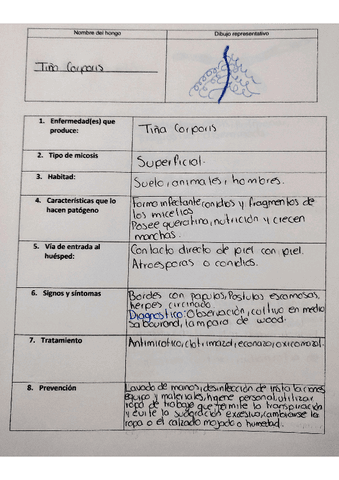 Nombre del hongo
Dibujo representativo
Tiña Corporis
1. Enfermedad(es) que produce:
Tiña Corporis
2. Tipo de micosis
Superficial.
3. Habitad:
Suelo, animales, hombres.
4. Características que lo hacen patógeno
Forma infectante conidios y fragmentos de
los micelios
Posee queratina, nutrición y crecen
manchas.
5. Vía de entrada al huésped:
Contacto directo de piel con piel.
Atroesporas o conidios.
6. Signos y síntomas
Bordes con papulos, Postulas escamosas,
herpes circinado
Diagnostico: Observación, cultivo en medio
sabourond, lampara de wood.
7. Tratamiento
Antimicotico, clotrimazol, econazol, oxiconazol.
8. Prevención
Lavado de manos, desinfección de instalaciones
equipo y materiales, higiene personal, utilizar
ropa de trabajo que permite la transpiración
y evite la sudoración excesiva, cambiarse la
ropa o el calzado mojado o humedad.